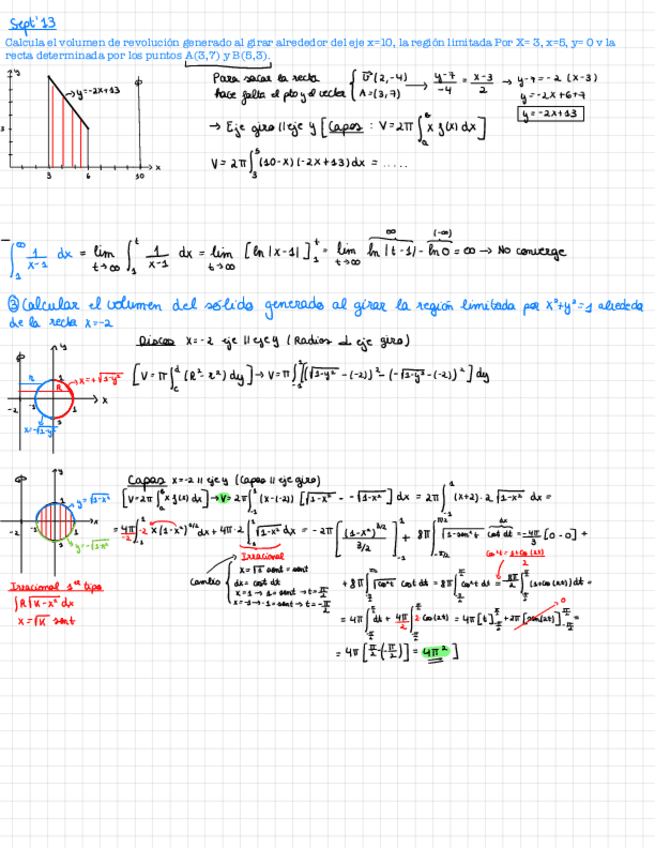 Sept' 13
Calcula el volumen de revolución generado al girar alrededor del eje x=10, la región limitada Por X= 3, x=5, y= 0 y la
recta determinada por los puntos A(3,7) y B(5,3).
Para sacar la recta hace falta el pto y el vector { v⃗(2,-4) A=(3,7) → y-7/-4 = x-3/2 → y-7=-2(x-3)
y=-2x+6+7
y=-2x+13
y=-2x+13
→ Eje giro // eje y [Capas : V=2π∫ₐᵇ x f(x) dx]
V=2π∫₃⁵ (10-x)(-2x+13)dx = .....
3 6 10 x
∫₁^∞ 1/(x-1) dx = lim t→∞ ∫₁ᵗ 1/(x-1) dx = lim t→∞ [ln|x-1|]₁ᵗ = lim t→∞ ln|t-1| - ln 0 = ∞ → No converge
② Calcular el volumen del sólido generado al girar la región limitada por x²+y²=1 alrededor
de la recta x=-2
Discos x=-2 eje // eje y (Radios ⊥ eje giro)
x=+√1-y²
[V=π∫(R²-r²)dy] → V=π∫[(√1-y² -(-2))² - (-√1-y² -(-2))²] dy
x=-√1-y²
Capas x=-2 // eje y (capas // eje giro)
y=√1-x²
[V=2π∫ₐᵇ x f(x) dx] → V= 2π∫₋₁¹ (x-(-2)) [√1-x² - -√1-x²] dx = 2π∫₋₁¹ (x+2)·2√1-x² dx =
y=-√1-x²
= 4π/-2 ∫₋₁¹ -2x(1-x²)^1/2 dx + 4π·2∫₋₁¹ √1-x² dx = -2π[(1-x²)^3/2 / 3/2]₋₁¹ + 8π∫ √1-sen²t cost dt = -4π/3 [0-0] +
Irracional
cos²t = 1+cos(2t)/2
Cambio { x=√1 sent = sent
dx = cost dt
x=1 → 1=sent → t=π/2
x=-1 → -1=sent → t=-π/2
+ 8π∫ √cos²t cost dt = 8π∫ cos²t dt = 8π/2 ∫ (1+cos(2t))dt =
= 4π∫ dt + 4π/2 ∫ 2 cos(2t) = 4π[t] + 2π[sen(2t)] =
= 4π[π/2 -(-π/2)] = 4π²]
Irracional 1er tipo
∫R√K-x² dx
x=√K sent